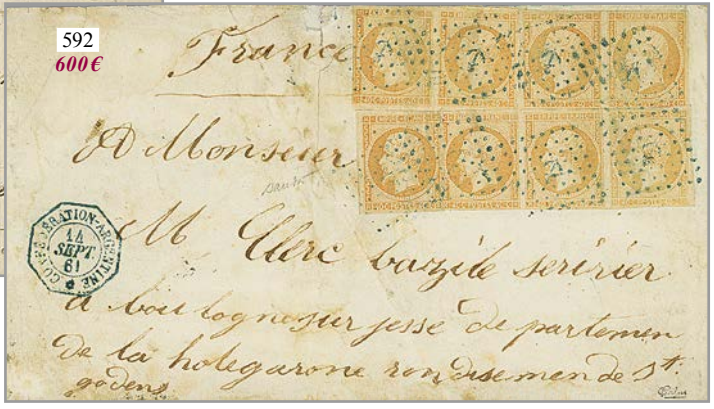 592
600€
France
A Monsieur
M Clerc bazile seririer
a boulogne sur jesse de partemen
de la holegarone rondisemen de St.
godens
CONFÉDÉRATION-ARGENTINE
14
SEPT.
61
EMPIRE FRANC
POSTES